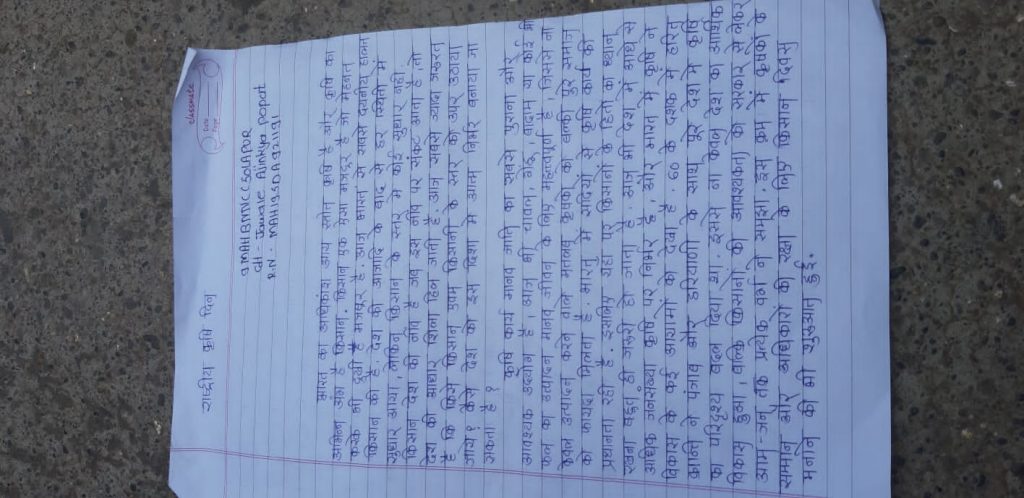 classmate
Date
Page
राष्ट्रीय कृषि दिन
9 MAH BNNCC SOLAPUR
Jawale Ajinkya popat
R.N - MAH19SDA921191
भारत का अधिकांश आय स्त्रोत कृषि है और कृषि का
अभिन्न अंग है किसान. किसान एक ऐसा मजदूर है जो मेहनत
करके भी दुःखी है मजबूर है. आज भारत में सबसे दयनीय हालत
किसान की है. देश की आजादि के बाद से हर स्थिती में
सुधार आया, लेकिन किसान के स्तर में कोई सुधार नही
किसान देश की नीव है जब इस नीव पर संकट आता है तो
देश की आधार शिला हिल जाती है. आज सबसे ज्यादा जरूरत
है कि कैसे किसान आम किसानी के स्तर को उपर उठाया
जाये? कैसे देश को इस दिशा में आत्म निर्भर बनाया जा
सकता है?
कृषि कार्य मानव जाति का सबसे पुराना और
आवश्यक उद्योग है. आज भी चावल, गेहू, बादाम या कोई भी
फल का उत्पादन मानव जीवन के लिए महत्वपूर्ण है, जिससे ना
केवल उत्पादन करने वाले मतलब कृषको का बल्की पुरे समाज
को फायदा मिलता है. भारत में सदियों से कृषि कार्य की
प्रधानता रही है. इसलिए यहा पर किसानों के हितो का ध्यान
रखना बहुत ही जरूरी हो जाता है. आज भी देश में आधे से
अधिक जनसंख्या कृषि पर निर्भर है, और भारत में कृषि ने
विकास के कई आयामों को देखा है. 60 के दशक में हरित
क्रान्ति ने पंजाब और हरियाणा के साथ पूरे देश में कृषि
का परिदृश्य बदल दिया था. इससे ना केवल देश का आर्थिक
विकास हुआ, बल्कि किसानों की आवश्यकता को सरकार से लेकर
आम-जन तक प्रत्येक वर्ग ने समझा. इस क्रम में कृषकों के
सम्मान और अधिकारो की रक्षा के लिए किसान दिवस
मनाने की भी शुरूआत हुई.